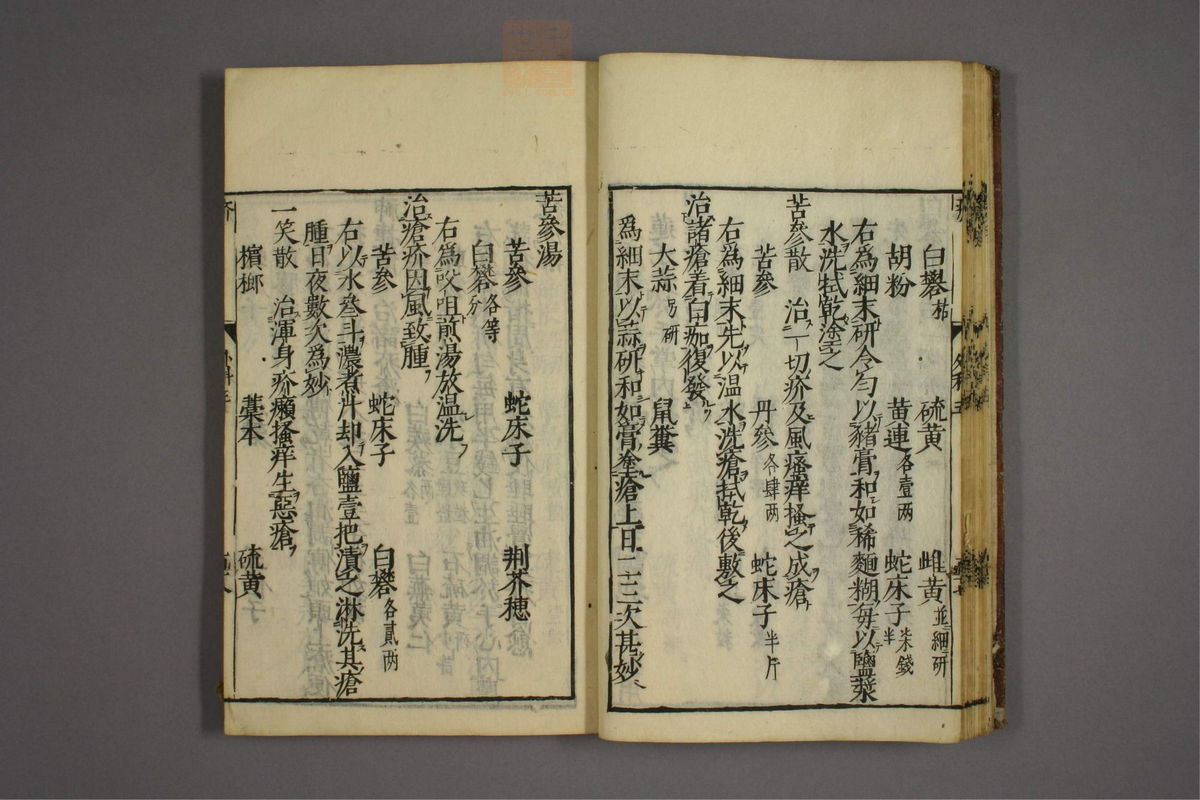 白礬枯 硫黄 雌黄並細研
胡粉 黄連各壹両 蛇床子柒錢半
右為細末研令匀以豬膏和如稀麵糊毎以鹽漿
水洗拭乾塗之
苦參散 治一切疥及風瘙痒搔之成瘡
苦參 丹參各肆両 蛇床子半斤
右為細末先以温水洗瘡拭乾後敷之
治諸瘡着白痂復發
大蒜 鼠糞
為細末以蒜研和如膏塗瘡上日二三次甚妙
苦參湯
苦參 蛇床子 荆芥穗
白礬各等分
右為㕮咀煎湯放温洗
治瘡疥因風致腫
苦參 蛇床子 白礬各貳両
右以水叄斗濃煮汁却入鹽壹把漬之淋洗其瘡
腫日夜數次為妙
一笑散 治渾身疥癩搔痒生惡瘡
檳榔 藁本 硫黄